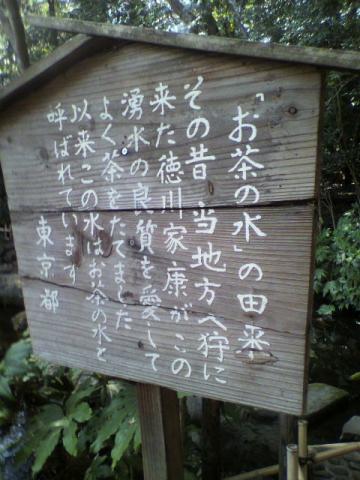 「お茶の水」の由来
その昔当地方へ狩に
来た徳川家康がこの
湧水の良質を愛して
よく茶をたてました。
以来この水はお茶の水と
呼ばれています
東京都